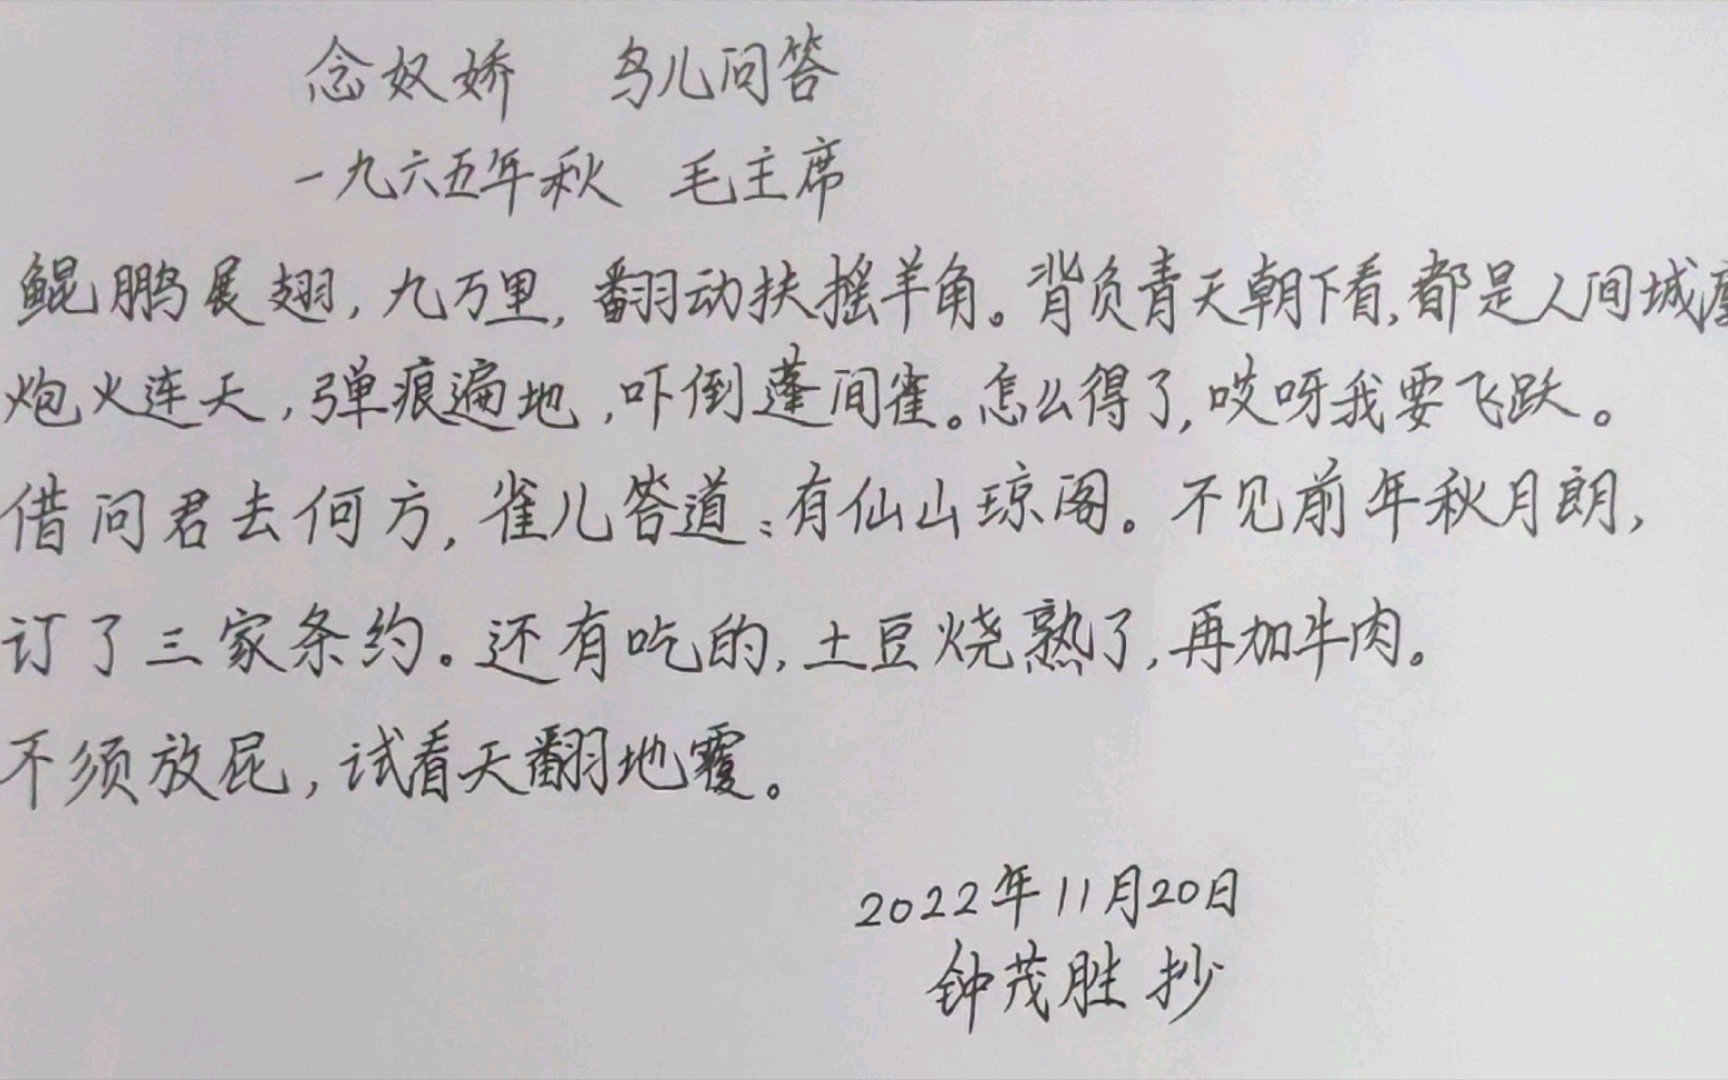 念奴娇 鸟儿问答
一九六五年秋 毛主席
鲲鹏展翅，九万里，翻动扶摇羊角。背负青天朝下看，都是人间城
炮火连天，弹痕遍地，吓倒蓬间雀。怎么得了，哎呀我要飞跃。
借问君去何方，雀儿答道：有仙山琼阁。不见前年秋月朗，
订了三家条约。还有吃的，土豆烧熟了，再加牛肉。
不须放屁，试看天翻地覆。
2022年11月20日
钟茂胜 抄